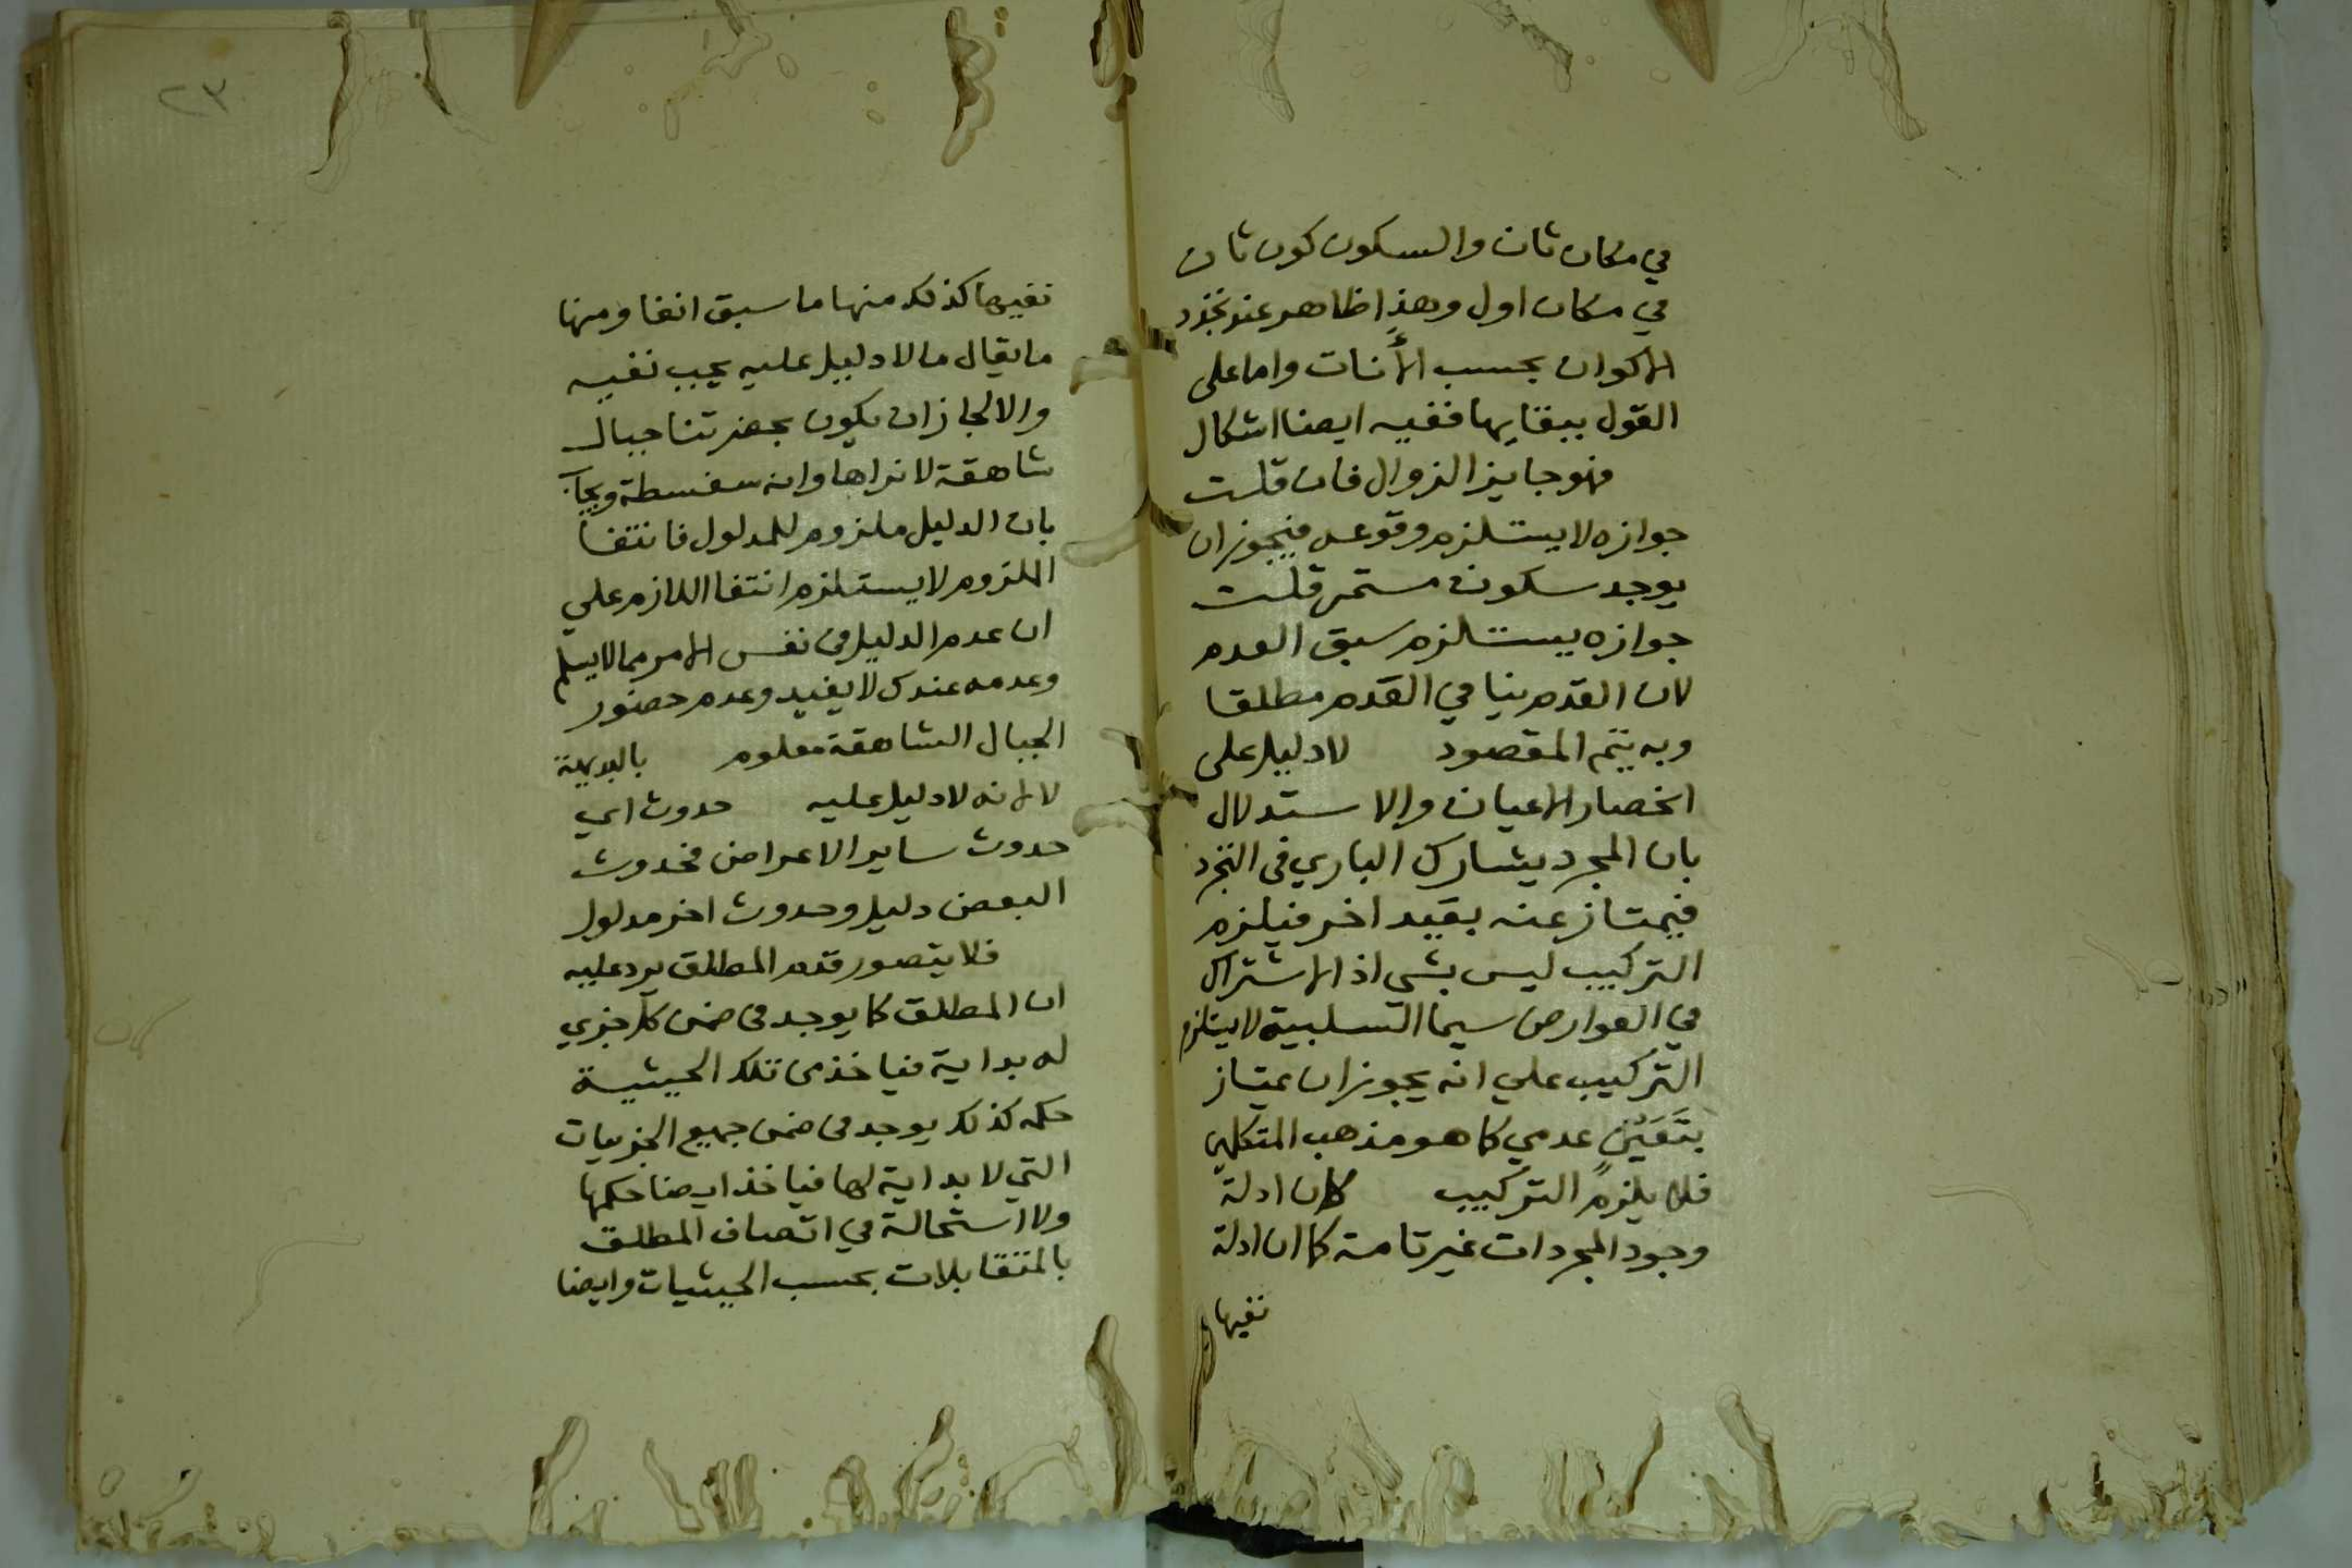 في مكان ثان والسكون كون ثان
في مكان اول وهذا ظاهر عند تجدد
الاكوان بحسب الأنات واما على
القول ببقايها ففيه ايضا اشكال
فهو جايز الزوال فان قلت
جوازه لا يستلزم وقوعه فيجوز ان
يوجد سكون مستمر قلت
جوازه يستلزم سبق العدم
لان القدم ينافي العدم مطلقا
وبه يتم المقصود لا دليل على
انحصار الاعيان والاستدلال
بان المجرد يشارك الباري في التجرد
فيمتاز عنه بقيد اخر فيلزم
التركيب ليس بشي اذ الاشتراك
في العوارض سيما السلبية لا يستلزم
التركيب علي انه يجوز ان يمتاز
بتَعَيّنٍ عدمي كما هو مذهب المتكلمين
فلا يلزم التركيب لان ادلة
وجود المجردات غير تامة كما ان ادلة
نفيها
٢٣
نفيها كذلك منها ما سبق انفا ومنها
ما يقال ما لا دليل عليه يجب نفيه
والا لجاز ان يكون بحضرتنا جبال
شاهقة لا نراها وانه سفسطة ويجاب
بان الدليل ملزوم للمدلول فانتفا
الملزوم لا يستلزم انتفا اللازم علي
ان عدم الدليل في نفس الامر مما لا يسلم
وعدمه عندك لا يفيد وعدم حضور
الجبال الشاهقة معلوم بالبديهة
لا لانه لا دليل عليه حدوث اي
حدوث ساير الاعراض فحدوث
البعض دليل وحدوث اخر مدلول
فلا يتصور قدم المطلق يرد عليه
ان المطلق كما يوجد في ضمن كل جزي
له بداية فياخذ من تلك الحيثية
حكمه كذلك يوجد في ضمن جميع الجزييات
التي لا بداية لها فياخذ ايضا حكمها
ولا استحالة في اتصاف المطلق
بالمتقابلات بحسب الحيثيات وايضا